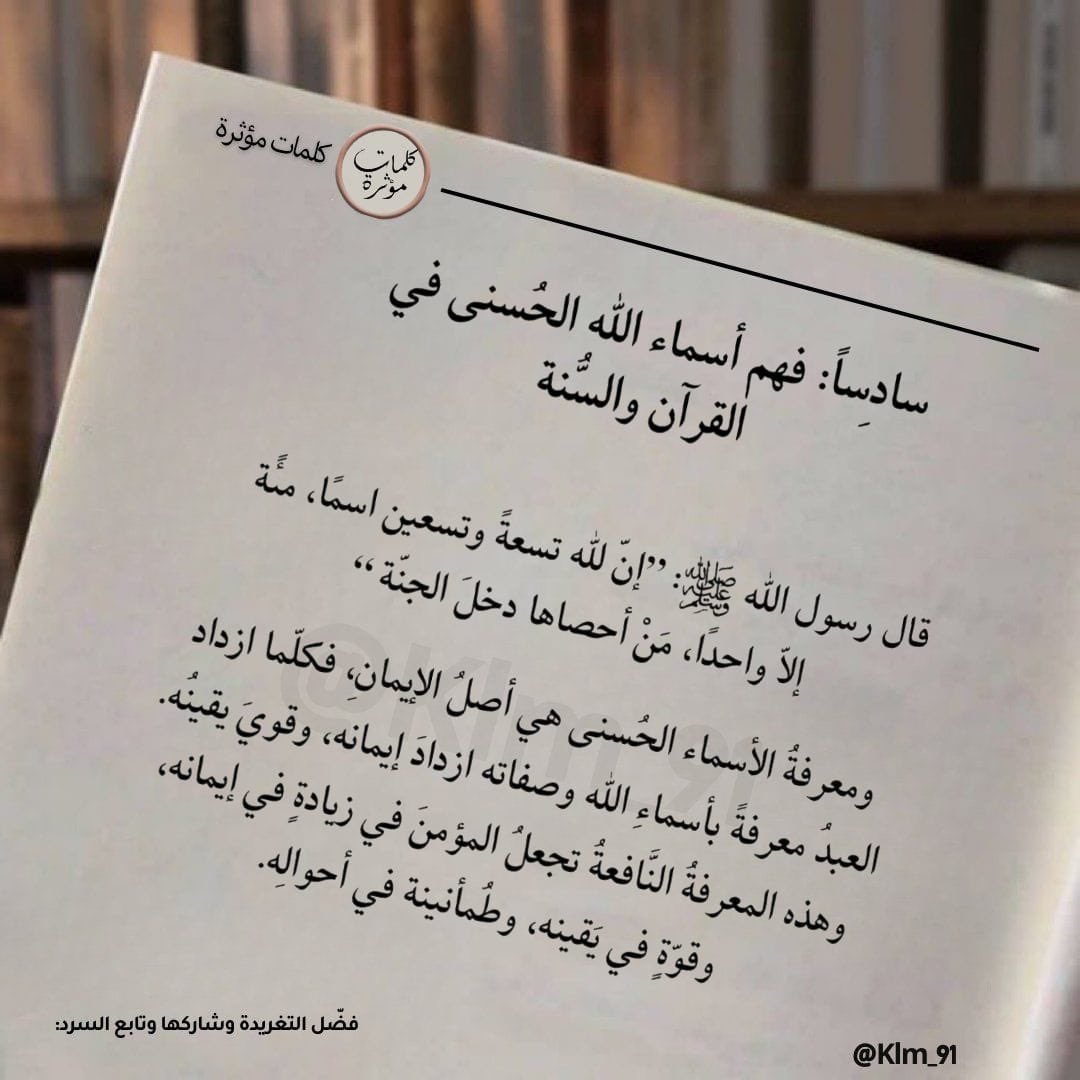 كلمات مؤثرة
كلمات
مؤثرة
سادسِاً: فهم أسماء الله الحُسنى في
القرآن والسُّنة
قال رسول الله ﷺ: ”إنّ لله تسعةً وتسعين اسمًا، مئًة
إلاّ واحدًا، مَنْ أحصاها دخلَ الجنّة“
ومعرفةُ الأسماء الحُسنى هي أصلُ الإيمانِ، فكلّما ازداد
العبدُ معرفةً بأسماءِ الله وصفاته ازدادَ إيمانه، وقويَ يقينُه.
وهذه المعرفةُ النَّافعةُ تجعلُ المؤمنَ في زيادةٍ في إيمانه،
وقوّةٍ في يَقينه، وطُمأنينة في أحوالِه.
@Klm_91
فضّل التغريدة وشاركها وتابع السرد:
@Klm_91